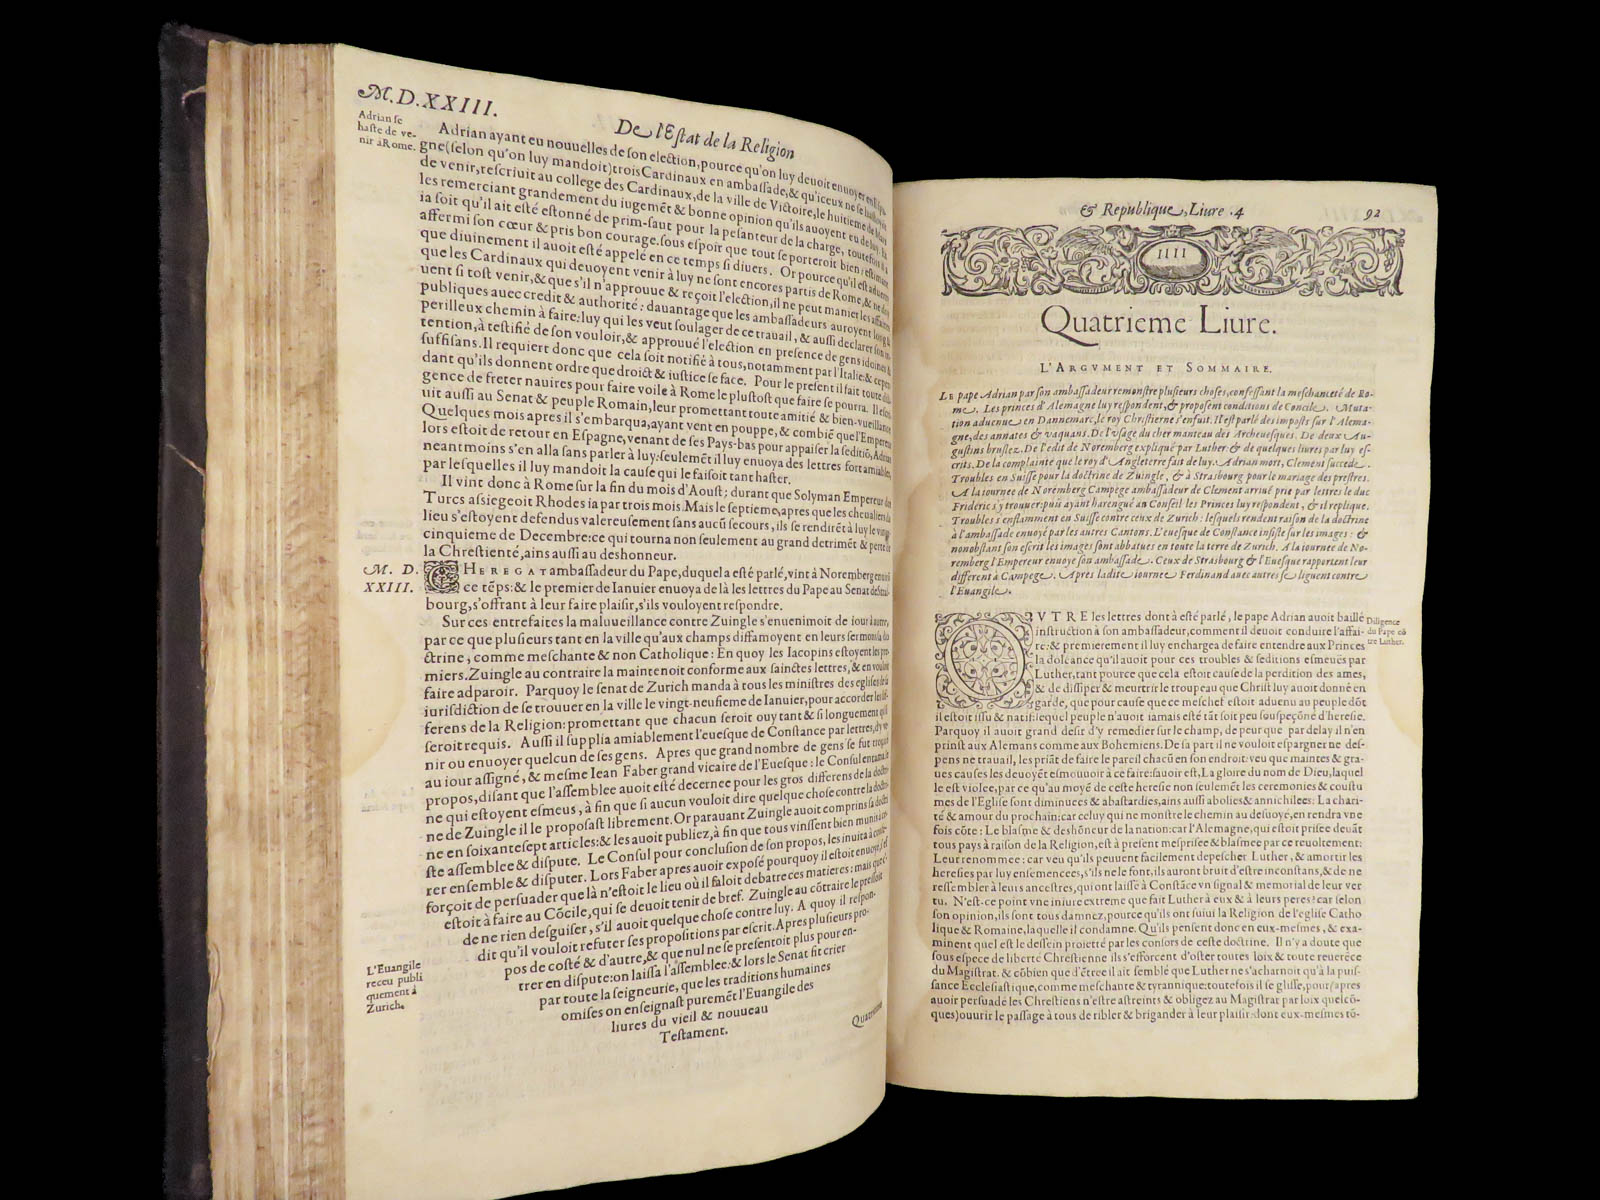 M.D.XXIII.
De l'Estat de la Religion
Adrian se
haste de ve-
nir à Rome.
Adrian ayant eu nouuelles de son election, pource qu'on luy deuoit enuoyer en
gne (selon qu'on luy mandoit) trois Cardinaux en ambassade, & qu'iceux ne se
de venir, rescriuit au college des Cardinaux, de la ville de Victoire, le huitieme de
les remerciant grandement du iugemēt & bonne opinion qu'ils auoyent eu de luy.
ia soit qu'il ait esté estonné de prim-saut pour la pesanteur de la charge, toutefois il a
affermi son cœur & pris bon courage, sous espoir que tout se porteroit bien: estimant
que diuinement il auoit esté appelé en ce temps si diuers. Or pource qu'il est aduerti
que les Cardinaux qui deuoyent venir à luy ne sont encores partis de Rome, & ne
uent si tost venir, & que s'il n'approuue & reçoit l'election, il ne peut manier les affaires
publiques auec credit & authorité: dauantage que les ambassadeurs auroyent long &
perilleux chemin à faire: luy qui les veut soulager de ce trauail, & aussi declarer son in-
tention, à testifié de son vouloir, & approuué l'election en presence de gens idoines &
suffisans. Il requiert donc que cela soit notifié à tous, notamment par l'Italie: & cepen
dant qu'ils donnent ordre que droict & iustice se face. Pour le present il fait toute dili
gence de freter nauires pour faire voile à Rome le plustost que faire se pourra. Il escri
uit aussi au Senat & peuple Romain, leur promettant toute amitié & bien-vueillance
Quelques mois apres il s'embarqua, ayant vent en pouppe, & combiē que l'Empereur
lors estoit de retour en Espagne, venant de ses Pays-bas pour appaiser la seditiō, Adrian
neantmoins s'en alla sans parler à luy: seulemēt il luy enuoya des lettres fort amiables,
par lesquelles il luy mandoit la cause qui le faisoit tant haster.
Il vint donc à Rome sur la fin du mois d'Aoust; durant que Solyman Empereur des
Turcs assiegeoit Rhodes ia par trois mois. Mais le septieme, apres que les cheualiers du
lieu s'estoyent defendus valereusement sans aucū secours, ils se rendirēt à luy le vingt
cinquieme de Decembre: ce qui tourna non seulement au grand detrimēt & perte de
la Chrestienté, ains aussi au deshonneur.
M. D.
XXIII.
CHEREGAT ambassadeur du Pape, duquel a esté parlé, vint à Noremberg enuiron
ce tēps: & le premier de Ianuier enuoya de là les lettres du Pape au Senat de Stras-
bourg, s'offrant à leur faire plaisir, s'ils vouloyent respondre.
Sur ces entrefaites la malueillance contre Zuingle s'enuenimoit de iour à autre,
par ce que plusieurs tant en la ville qu'aux champs diffamoyent en leurs sermons sa do
ctrine, comme meschante & non Catholique: En quoy les Iacopins estoyent les pre
miers. Zuingle au contraire la maintenoit conforme aux sainctes lettres, & en vouloit
faire adparoir. Parquoy le senat de Zurich manda à tous les ministres des eglises de sa
iurisdiction de se trouuer en la ville le vingt-neufieme de Ianuier, pour accorder les dif-
ferens de la Religion: promettant que chacun seroit ouy tant & si longuement qu'il
seroit requis. Aussi il supplia amiablement l'euesque de Constance par lettres, d'y ve
nir ou enuoyer quelcun de ses gens. Apres que grand nombre de gens se fut trouué
au iour assigné, & mesme Iean Faber grand vicaire de l'Euesque: le Consul entama le
propos, disant que l'assemblee auoit esté decernee pour les gros differens de la doctri-
ne qui estoyent esmeus, à fin que si aucun vouloit dire quelque chose contre la doctri-
ne de Zuingle il le proposast librement. Or parauant Zuingle auoit comprins sa doctri
ne en soixante sept articles: & les auoit publiez, à fin que tous vinssent bien munis à ce-
ste assemblee & dispute. Le Consul pour conclusion de son propos, les inuita à confe-
rer ensemble & disputer. Lors Faber apres auoir exposé pourquoy il estoit enuoyé, s'ef
forçoit de persuader que là n'estoit le lieu où il faloit debatre ces matieres: mais que c'
estoit à faire au Cōcile, qui se deuoit tenir de bref. Zuingle au cōtraire le pressoit
de ne rien desguiser, s'il auoit quelque chose contre luy. A quoy il respon-
dit qu'il vouloit refuter ses propositions par escrit. Apres plusieurs pro-
pos de costé & d'autre, & que nul ne se presentoit plus pour en-
trer en dispute: on laissa l'assemblee: & lors le Senat fit crier
par toute la seigneurie, que les traditions humaines
omises on enseignast puremēt l'Euangile des
liures du vieil & nouueau
Testament.
L'Euangile
receu publi
quement à
Zurich.
Quatrieme
& Republique, Liure .4
92
IIII
Quatrieme Liure.
L'ARGVMENT ET SOMMAIRE.
LE pape Adrian par son ambassadeur remonstre plusieurs choses, confessant la meschanceté de Ro-
me. Les princes d'Alemagne luy respondent, & proposent conditions de Concile. Muta-
tion aduenue en Dannemarc, le roy Christierne s'enfuit. Il est parlé des imposts sur l'Alema-
gne, des annates & vaquans. De l'vsage du cher manteau des Archeuesques. De deux Au-
gustins bruslez. De l'edit de Noremberg expliqué par Luther: & de quelques liures par luy es-
crits. De la complainte que le roy d'Angleterre fait de luy. Adrian mort, Clement succede.
Troubles en Suisse pour la doctrine de Zuingle, & à Strasbourg pour le mariage des prestres.
A la iournee de Noremberg Campège ambassadeur de Clement arriué prie par lettres le duc
Frideric s'y trouuer: puis ayant harengué en Conseil les Princes luy respondent, & il replique.
Troubles s'enflamment en Suisse contre ceux de Zurich: lesquels rendent raison de la doctrine
à l'ambassade enuoyé par les autres Cantons. L'euesque de Constance insiste sur les images: &
nonobstant son escrit les images sont abbatues en toute la terre de Zurich. A la iournee de No-
remberg l'Empereur enuoye son ambassade. Ceux de Strasbourg & l'Euesque rapportent leur
different à Campege. Apres ladite iournee Ferdinand auec autres se liguent contre
l'Euangile.
OVTRE les lettres dont à esté parlé, le pape Adrian auoit baillé
instruction à son ambassadeur, comment il deuoit conduire l'affai-
re: & premierement il luy enchargea de faire entendre aux Princes
la doleance qu'il auoit pour ces troubles & seditions esmeuës par
Luther, tant pource que cela estoit cause de la perdition des ames,
& de dissiper & meurtrir le troupeau que Christ luy auoit donné en
garde, que pour cause que ce meschef estoit aduenu au peuple dōt
il estoit issu & natif: lequel peuple n'auoit iamais esté tāt soit peu souspeçōné d'heresie.
Parquoy il auoit grand desir d'y remedier sur le champ, de peur que par delay il n'en
prinst aux Alemans comme aux Bohemiens. De sa part il ne vouloit espargner ne des-
pens ne trauail, les priāt de faire le pareil chacū en son endroit: veu que maintes & gra-
ues causes les deuoyēt esmouuoir à ce faire: sauoir est, La gloire du nom de Dieu, laquel
le est violee, par ce qu'au moyē de ceste heresie non seulement les ceremonies & coustu
mes de l'Eglise sont diminuees & abastardies, ains aussi abolies & annichilees: La chari-
té & amour du prochain: car celuy qui ne monstre le chemin au desuoyé, en rendra vne
fois cōte: Le blasme & deshōneur de la nation: car l'Alemagne, qui estoit prisee deuāt
tous pays à raison de la Religion, est à present mesprisee & blasmee par ce reuoltement:
Leur renommee: car veu qu'ils peuuent facilement depescher Luther, & amortir les
heresies par luy ensemencees, s'ils ne le font, ils auront bruit d'estre inconstans, & de ne
ressembler à leurs ancestres, qui ont laissé à Constāce vn signal & memorial de leur ver
tu. N'est-ce point vne iniure extreme que fait Luther à eux & à leurs peres? car selon
son opinion, ils sont tous damnez, pource qu'ils ont suiui la Religion de l'eglise Catho
lique & Romaine, laquelle il condamne. Qu'ils pensent donc en eux-mesmes, & exa-
minent quel est le dessein proietté par les consors de ceste doctrine. Il n'y a doute que
sous espece de liberté Chrestienne ils s'efforcent d'oster toutes loix & toute reuerēce
du Magistrat. & cōbien que d'ētree il ait semblé que Luther ne s'acharnoit qu'à la puis-
sance Ecclesiastique, comme meschante & tyrannique: toutefois il se glisse, pour (apres
auoir persuadé les Chrestiens n'estre astreints & obligez au Magistrat par loix quelcō-
ques) ouurir le passage à tous de ribler & brigander à leur plaisir: dont eux-mesmes tō-
Diligence
du Pape cō
tre Luther.